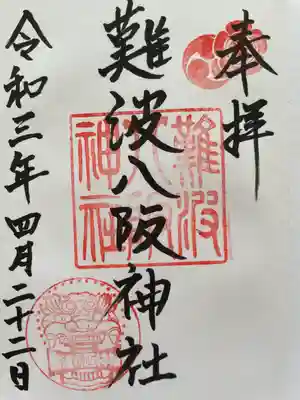 奉拝
難波八阪神社
難波
八阪
神社
令和三年四月二十二日